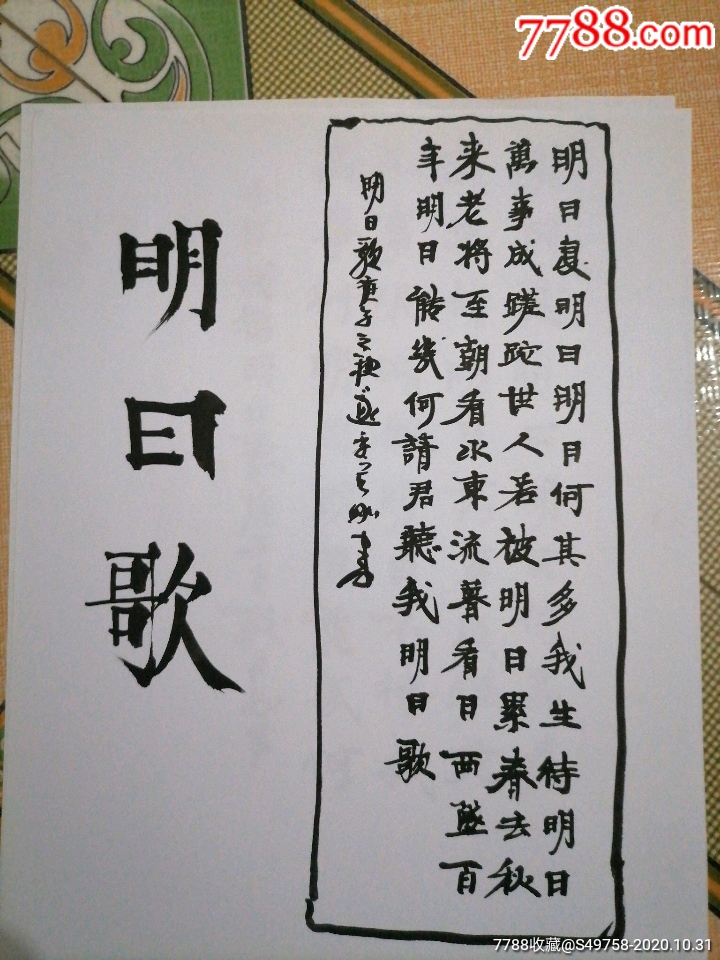 7788.com
明日复明日明日何其多我生待明日
萬事成蹉跎世人若被明日累春去秋
来老将至朝看水東流暮看日西墜百
年明日能幾何請君聽我明日歌
明日歌庚子之秋
明日歌
7788收藏@S49758-2020.10.31